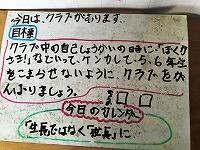 今日は、クラブがあります。
目標
クラブ中の自己しょうかいの時に「ぼくが
さき!」などいって、ケンカして、5、6年生
をこまらせないように、クラブをが
んばりましょう。
今日のカレンダー
「生長ではなく「社長」に